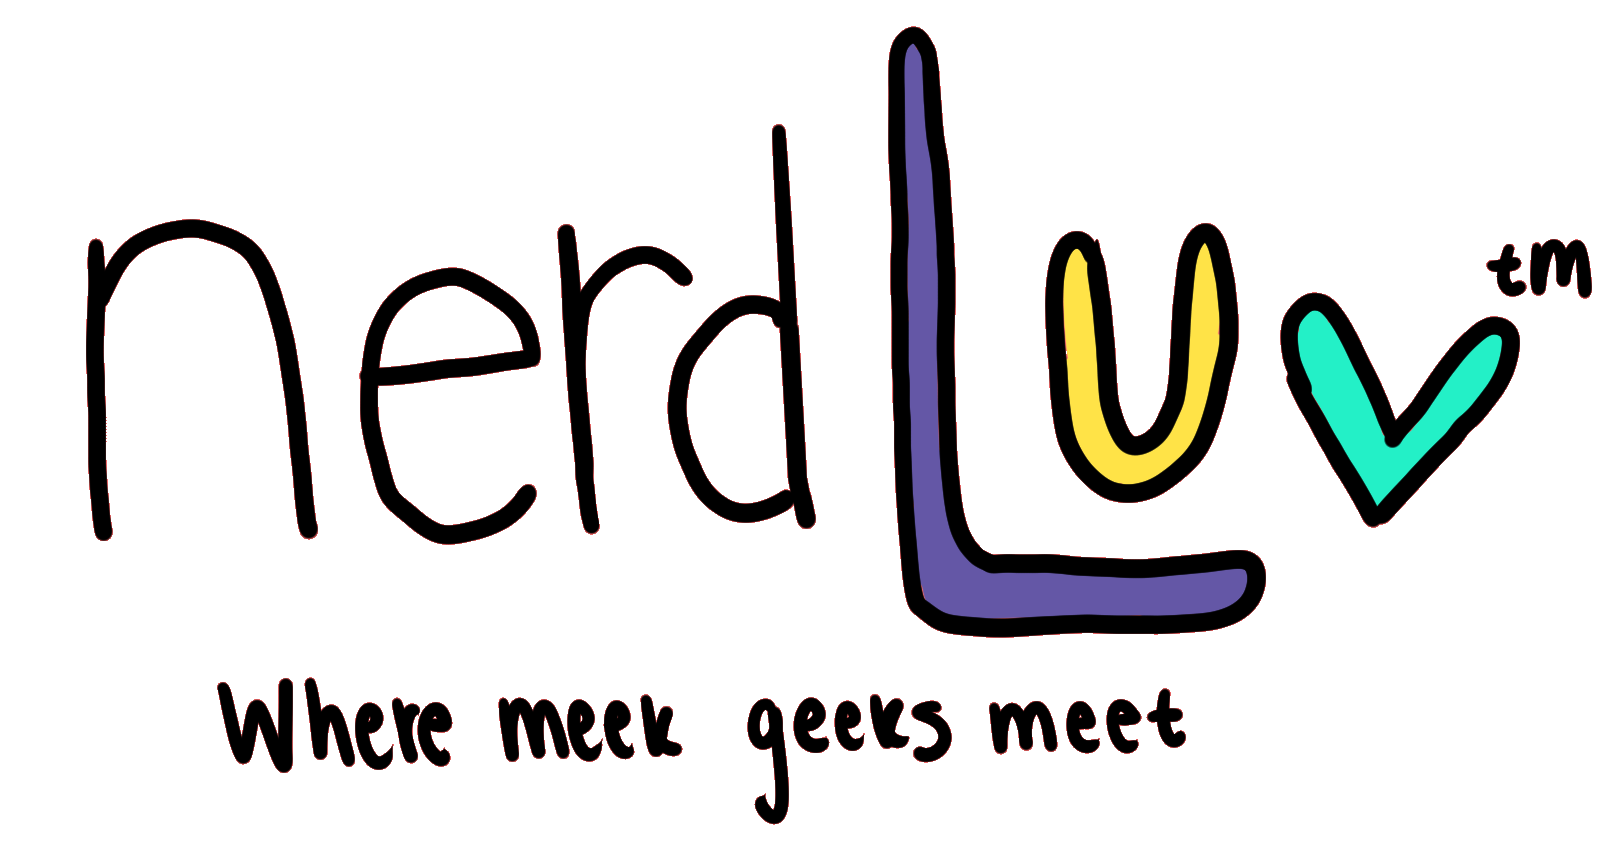 nerdLuv tm
Where meek geeks meet